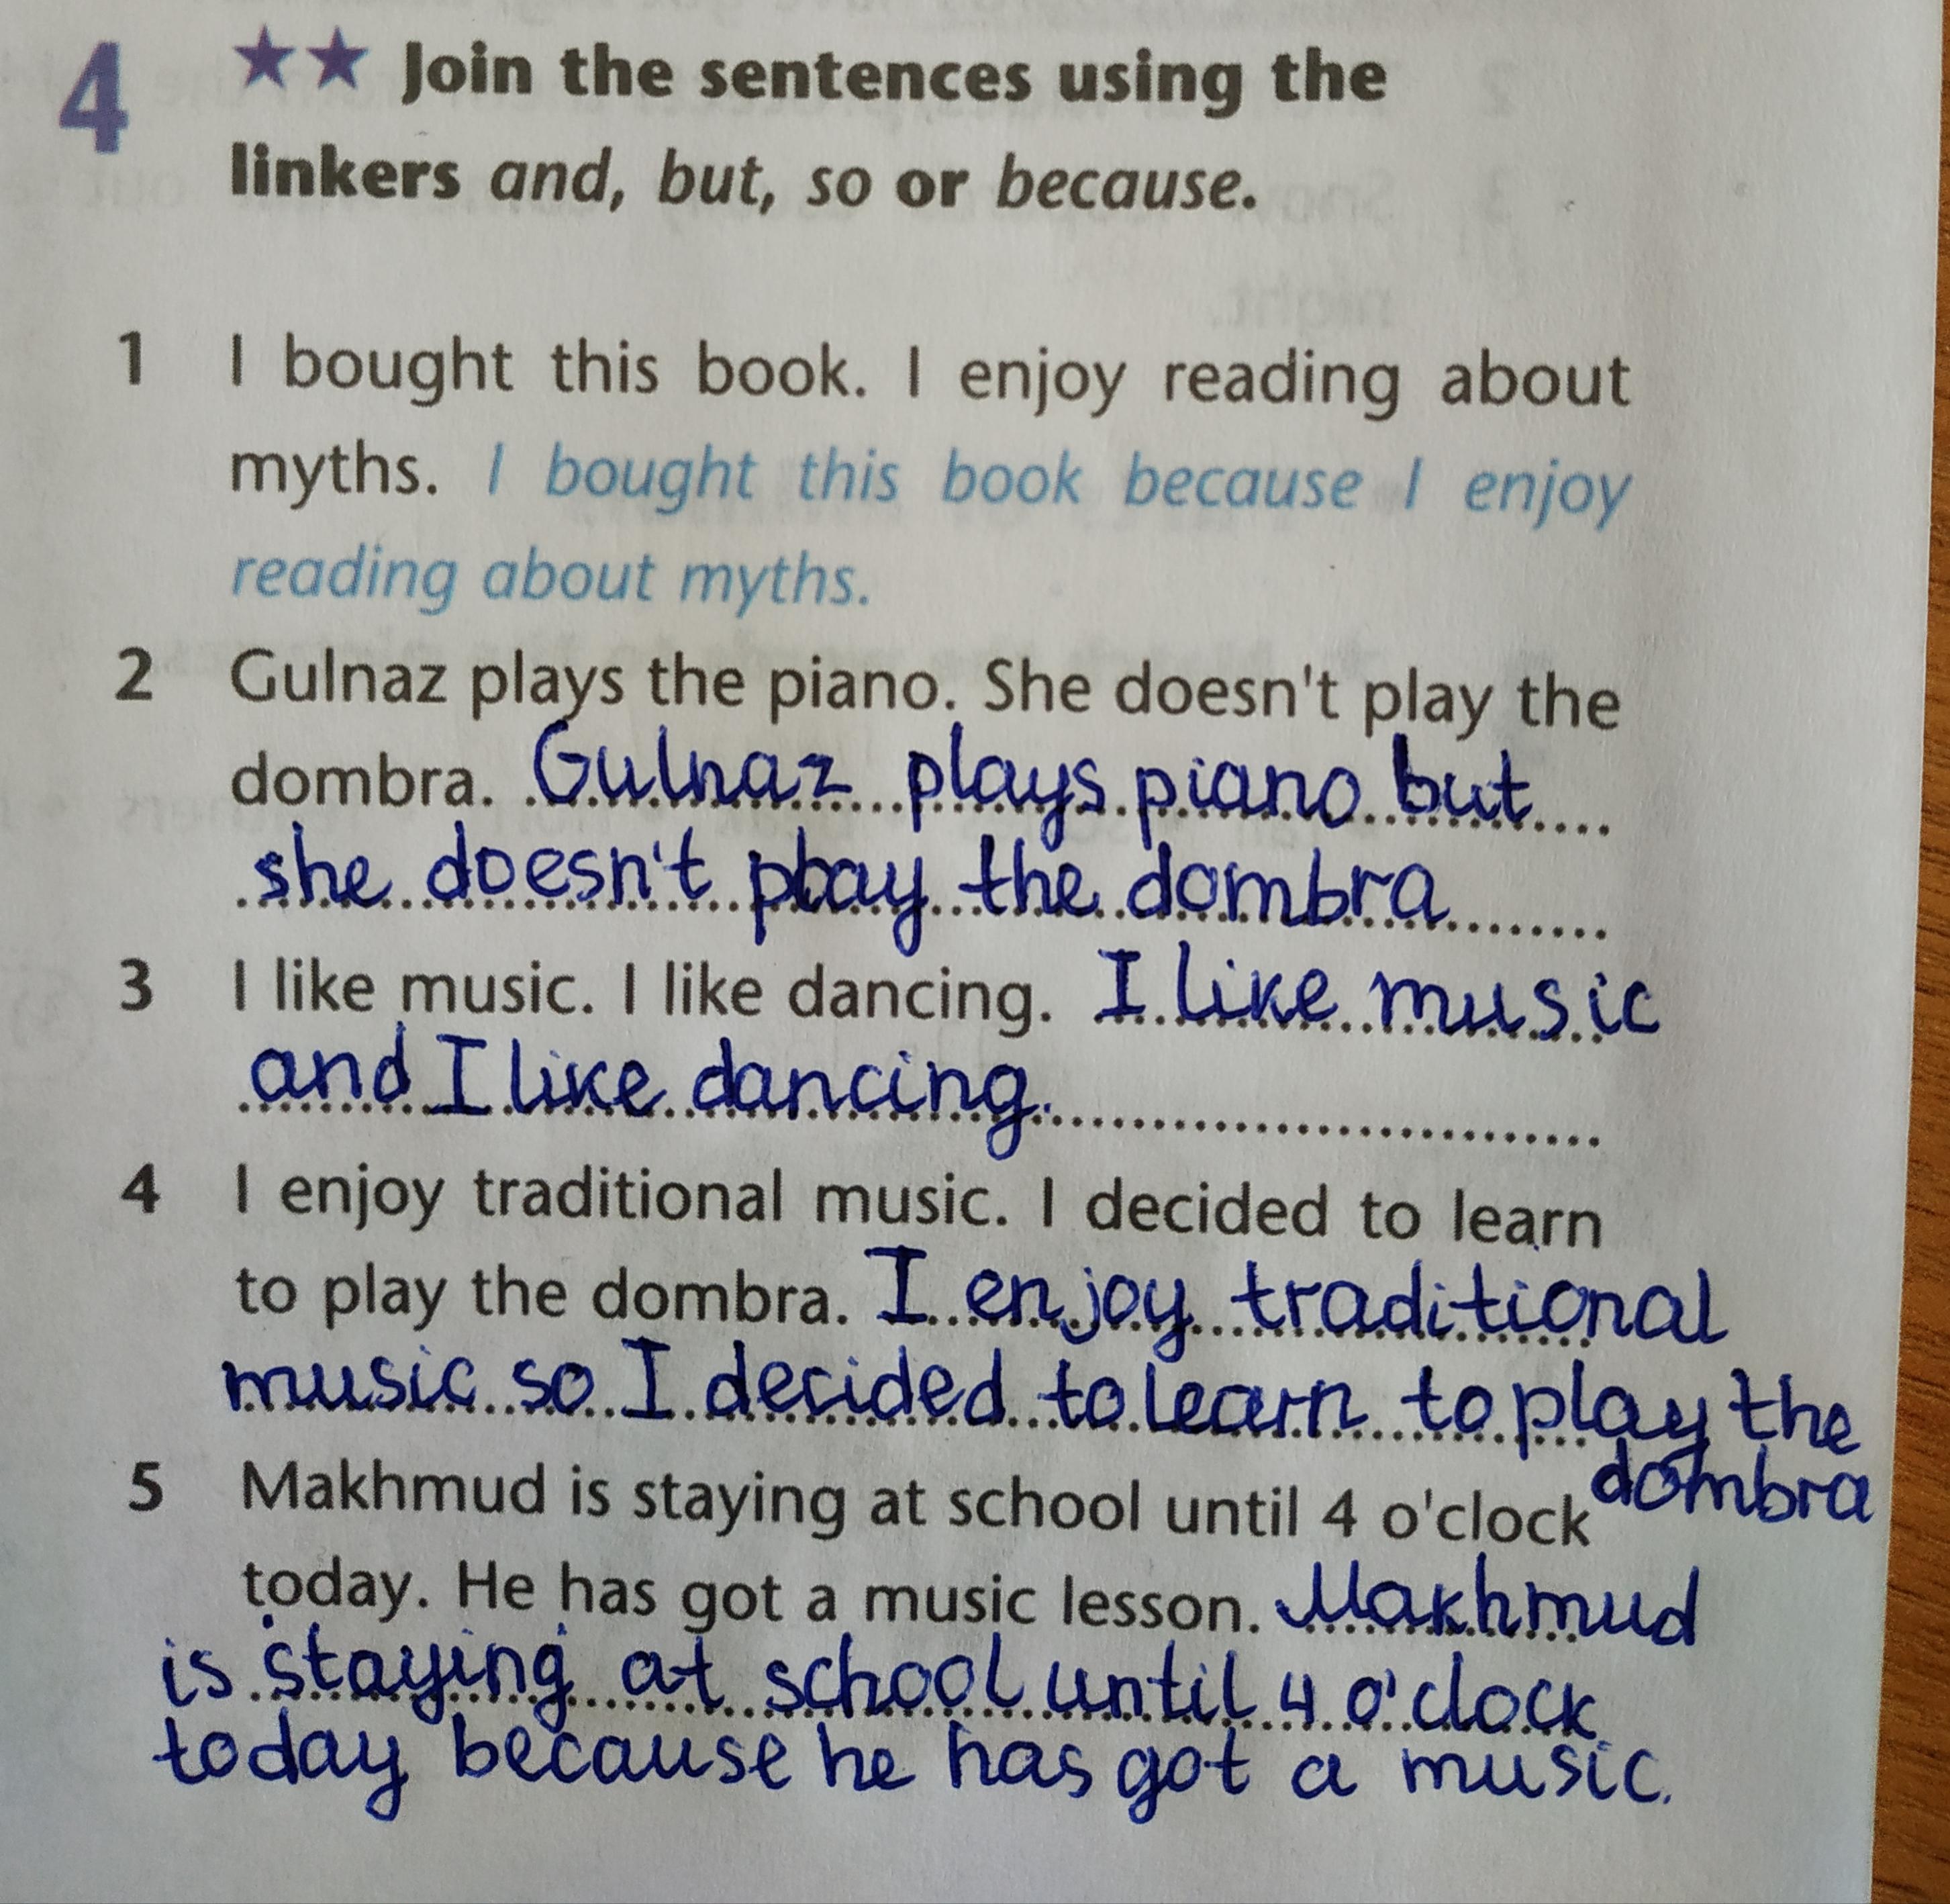 4 ★★ Join the sentences using the
linkers and, but, so or because.
1 I bought this book. I enjoy reading about
myths. I bought this book because I enjoy
reading about myths.
2 Gulnaz plays the piano. She doesn't play the
dombra. Gulnaz plays piano but
she doesn't play the dombra
3 I like music. I like dancing. I like music
and I like dancing.
4 I enjoy traditional music. I decided to learn
to play the dombra. I enjoy traditional
music so I decided to learn to play the
dombra
5 Makhmud is staying at school until 4 o'clock
today. He has got a music lesson. Makhmud
is staying at school until 4 o'clock
today because he has got a music.